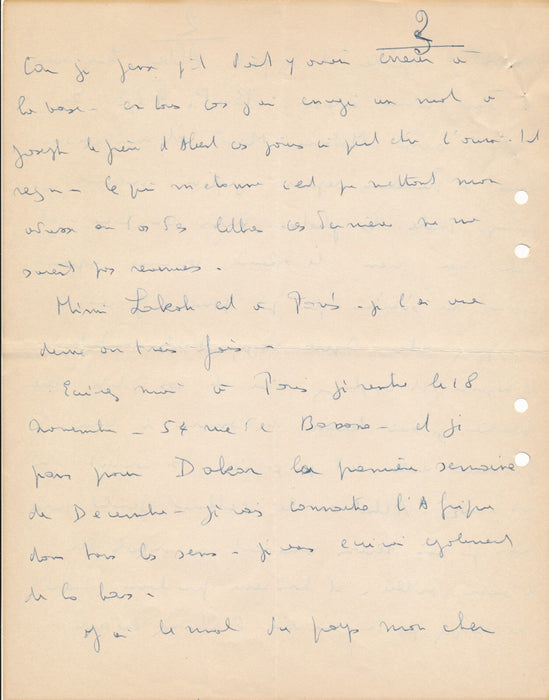 2
Car je pense qu'il doit y avoir erreur à
la base - en tous cas j'ai envoyé un mot à
Joseph le frère d'Albert ces jours ci peut être l'aura-t-il
reçu - Ce qui m'étonne c'est que mettant mon
adresse au dos des lettres ces dernières ne me
soient pas revenues.
Mimi Lakah est à Paris - je l'ai vue
deux ou trois fois -
Ecivez moi à Paris je rentre le 18
Novembre - 54 rue de - et je
pars pour Dakar la première semaine
de Décembre - je vais connaitre l'Afrique
dans tous les sens - je vous ecrirai egalement
de la bas -
J'ai le mal du pays mon cher